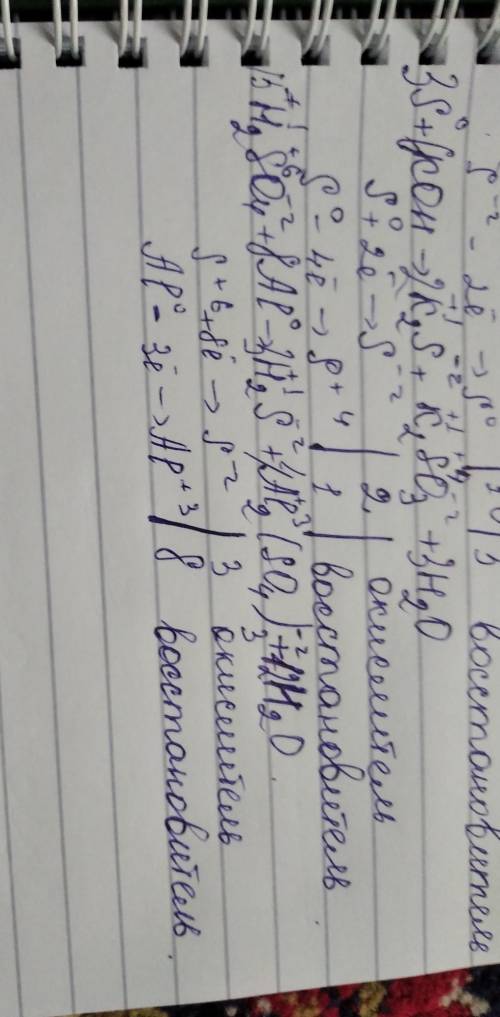 S⁻² - 2ē → S⁰ | 3 восстановитель
3S⁰ + 6KOH → 2K₂⁺¹S⁻² + K₂⁺¹S⁺⁴O₃⁻² + 3H₂O
S⁰ + 2ē → S⁻² | 2 | окислитель
S⁰ - 4ē → S⁺⁴ | 1 | восстановитель
15H₂⁺¹S⁺⁶O₄⁻² + 8Al⁰ → 3H₂⁺¹S⁻² + 4Al₂⁺³(SO₄)₃⁻² + 12H₂O
S⁺⁶ + 8ē → S⁻² | 3 окислитель
Al⁰ - 3ē → Al⁺³ | 8 восстановитель.